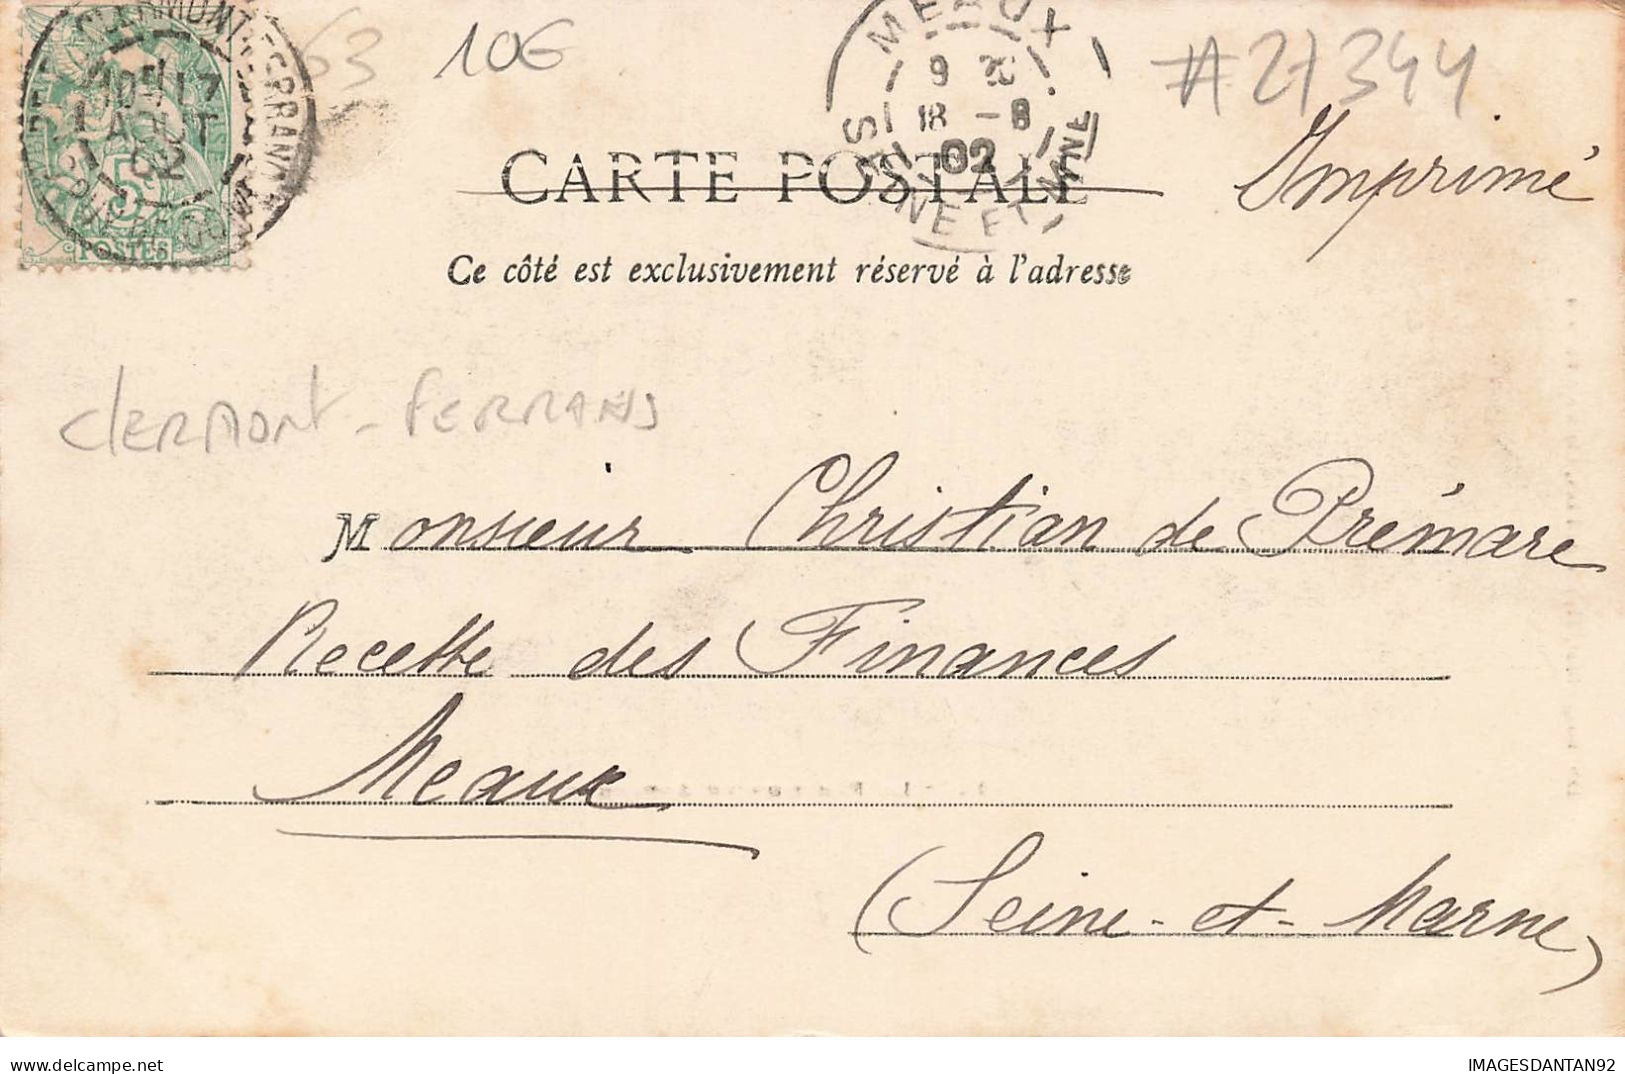 CLERMONT-FERRAND
17
AOUT
02
PUY-DE-DOME
5
POSTES
63
10€
MEAUX
9
18 - 8
02
SEINE ET MARNE
#21344
CARTE POSTALE
Imprimé
Ce côté est exclusivement réservé à l'adresse
Clermont-Ferrand
Monsieur Christian de Prémare
Recette des Finances
Meaux
(Seine-et-Marne)
IMAGESDANTAN92